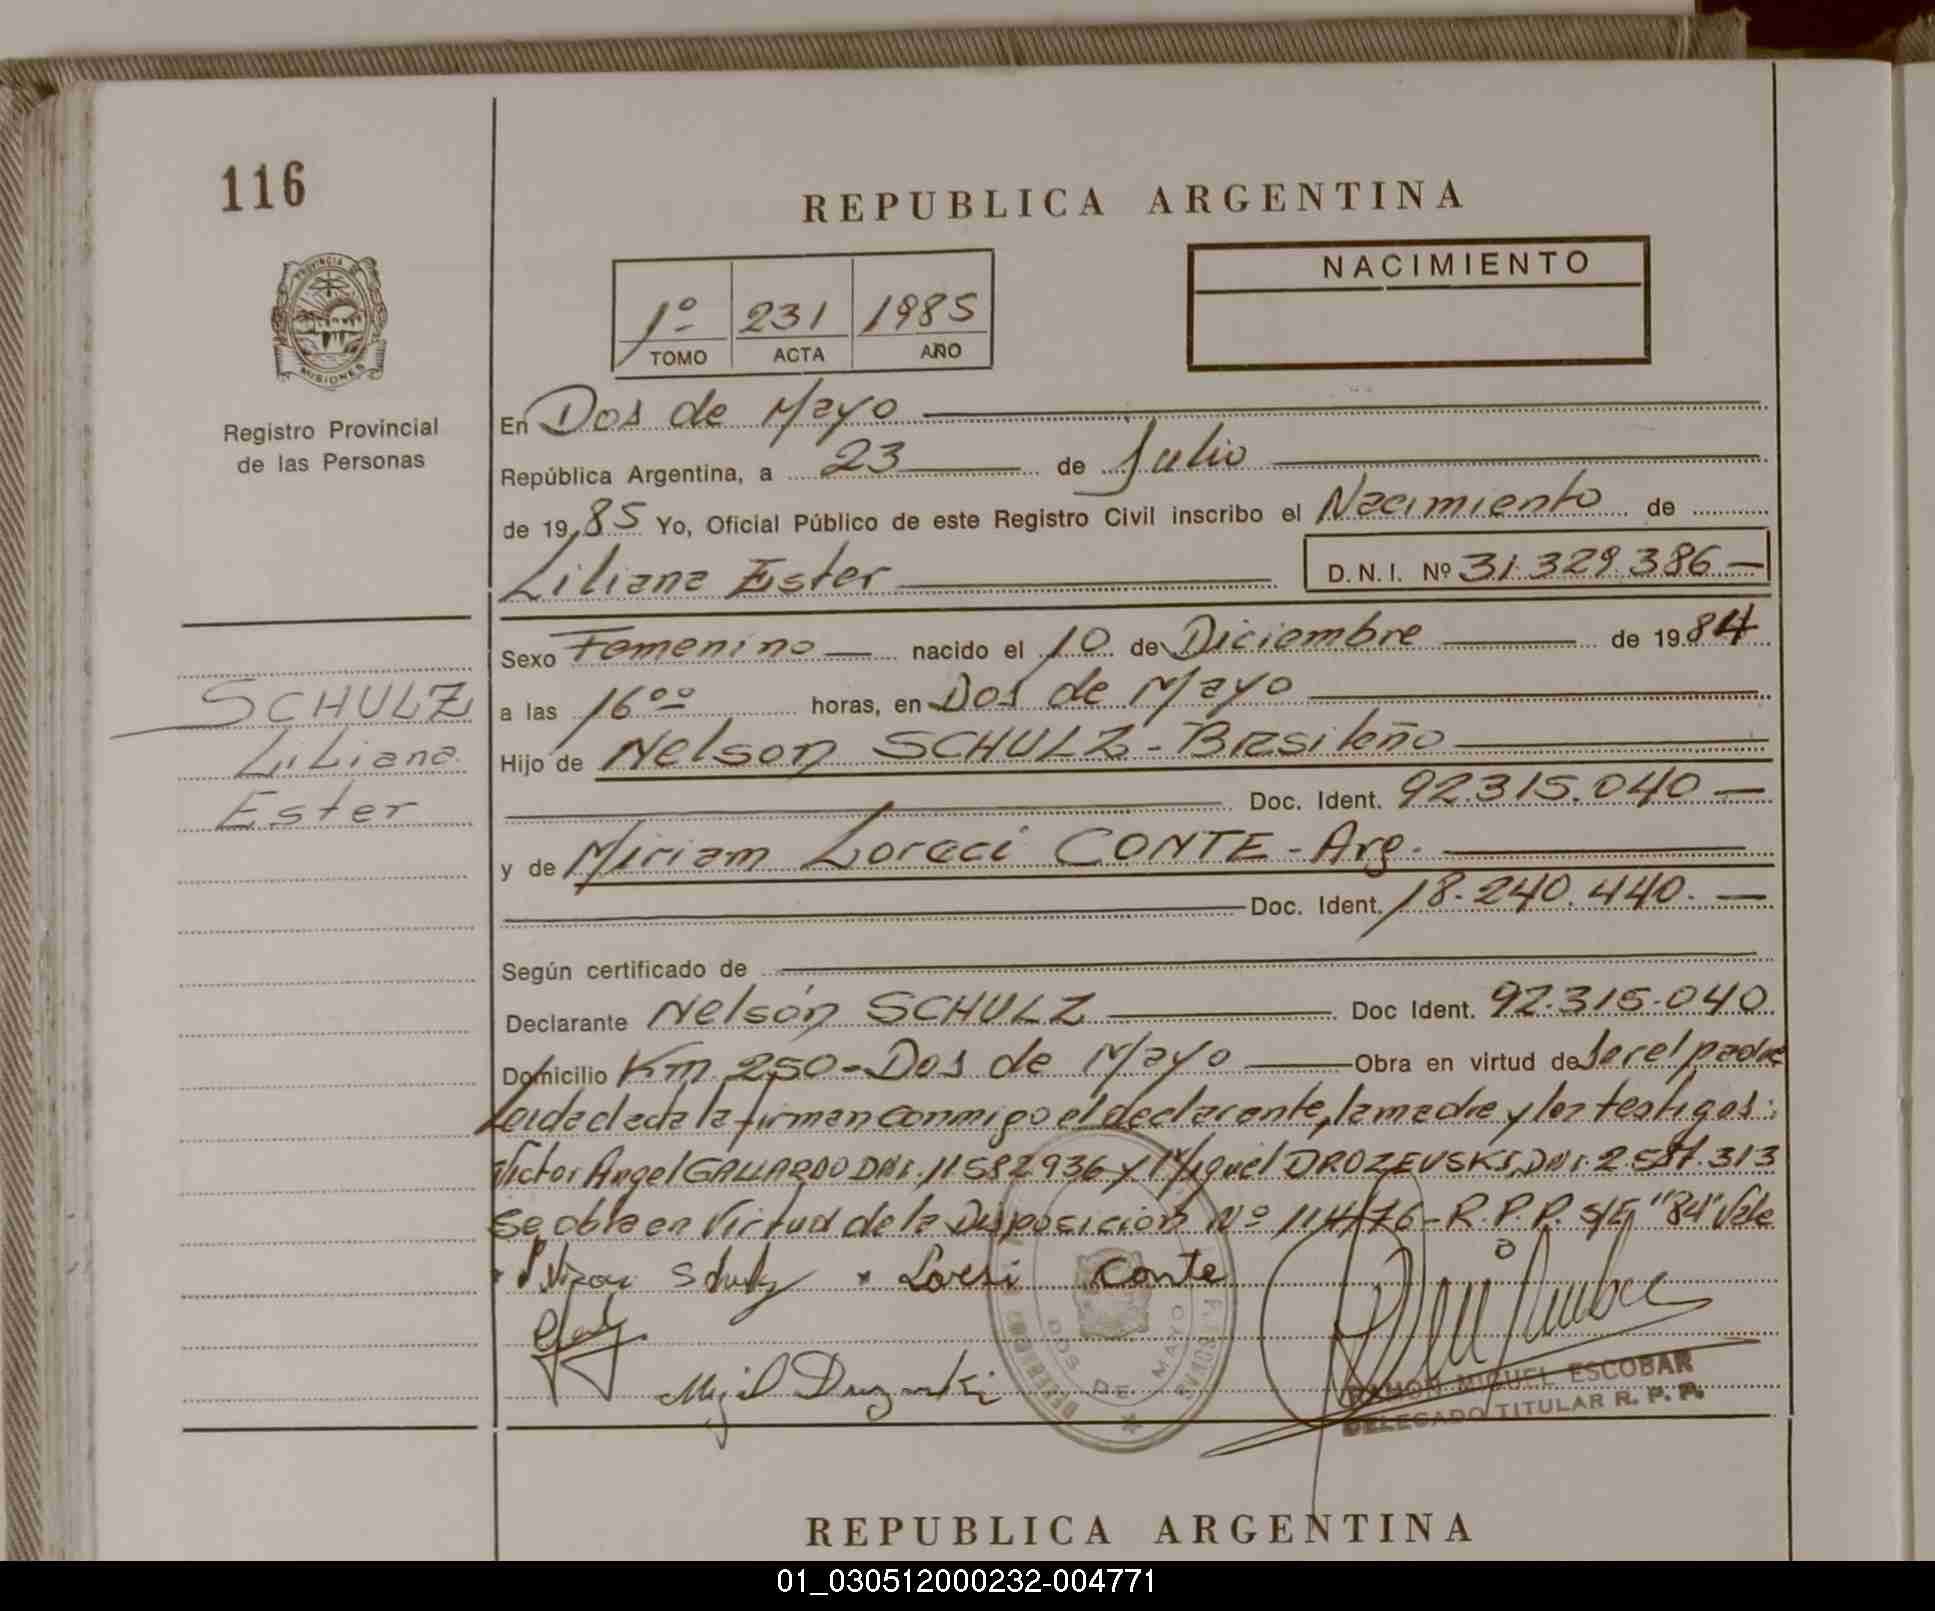 116
REPUBLICA ARGENTINA
PROVINCIA DE
MISIONES
Registro Provincial
de las Personas
1º 231 1985
TOMO ACTA AÑO
NACIMIENTO
En Dos de Mayo
República Argentina, a 23 de Julio
de 1985 Yo, Oficial Público de este Registro Civil inscribo el Nacimiento de
Liliana Ester D.N.I. Nº 31.329.386
Sexo Femenino nacido el 10 de Diciembre de 1984
a las 16 00 horas, en Dos de Mayo
Hijo de Nelson SCHULZ - Brasileño
Doc. Ident. 92.315.040
y de Miriam Loreci CONTE - Arg.
Doc. Ident. 18.240.440.
Según certificado de
Declarante Nelsón SCHULZ Doc Ident. 92.315.040
Domicilio Km 250 - Dos de Mayo Obra en virtud de ser el padre
Leida el acta la firman conmigo el declarante, la madre y los testigos:
Victor Angel GALLARDO DNI. 11.582936 y Miguel DROZEVSKI, DNI. 2.587.313
Se obra en Virtud de la Disposición Nº 114/76 - R.P.P. S/E "84" Vale
SCHULZ
Liliana
Ester
Loresi Conte
DOS DE MAYO
RAMON MIGUEL ESCOBAR
DELEGADO TITULAR R. P. P.
REPUBLICA ARGENTINA
01_030512000232-004771